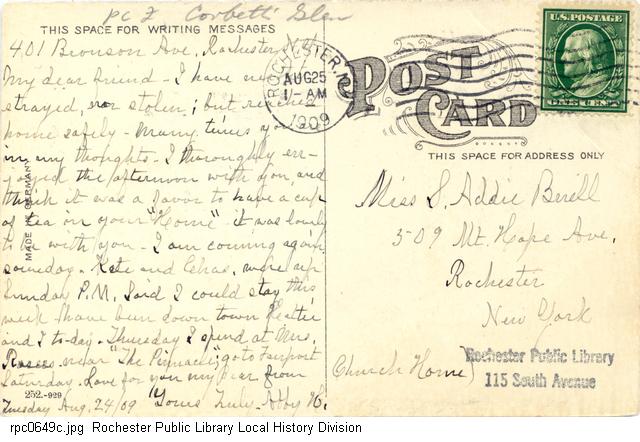 pc 7 Corbett's Glen
THIS SPACE FOR WRITING MESSAGES
401 Bronson Ave, Rochester
My dear friend - I have
strayed, nor stolen; but reached
home safely - Many times you
in my thoughts - I thoroughly en-
joyed the afternoon with you, and
think it was a favor to have a cup
of tea in your "Home" it was lovely
to be with you - I am coming again
someday - Kate and Chas, were up
Sunday P.M. Said I could stay this
week have been down town
and I to-day. Thursday I spend at Mrs.
near "The Pinnacle," go to Fairport
Saturday. Love for you my dear from
Tuesday Aug. 24/09 "Yours Truly - Abby H.
252-929
MADE IN GERMANY
ROCHESTER N.Y.
AUG 25
1 - AM
1909
POST CARD
U.S. POSTAGE
ONE CENT
THIS SPACE FOR ADDRESS ONLY
Miss S. Addie Berell
509 Mt. Hope Ave,
Rochester
New York
(Church Home)
Rochester Public Library
115 South Avenue
rpc0649c.jpg Rochester Public Library Local History Division